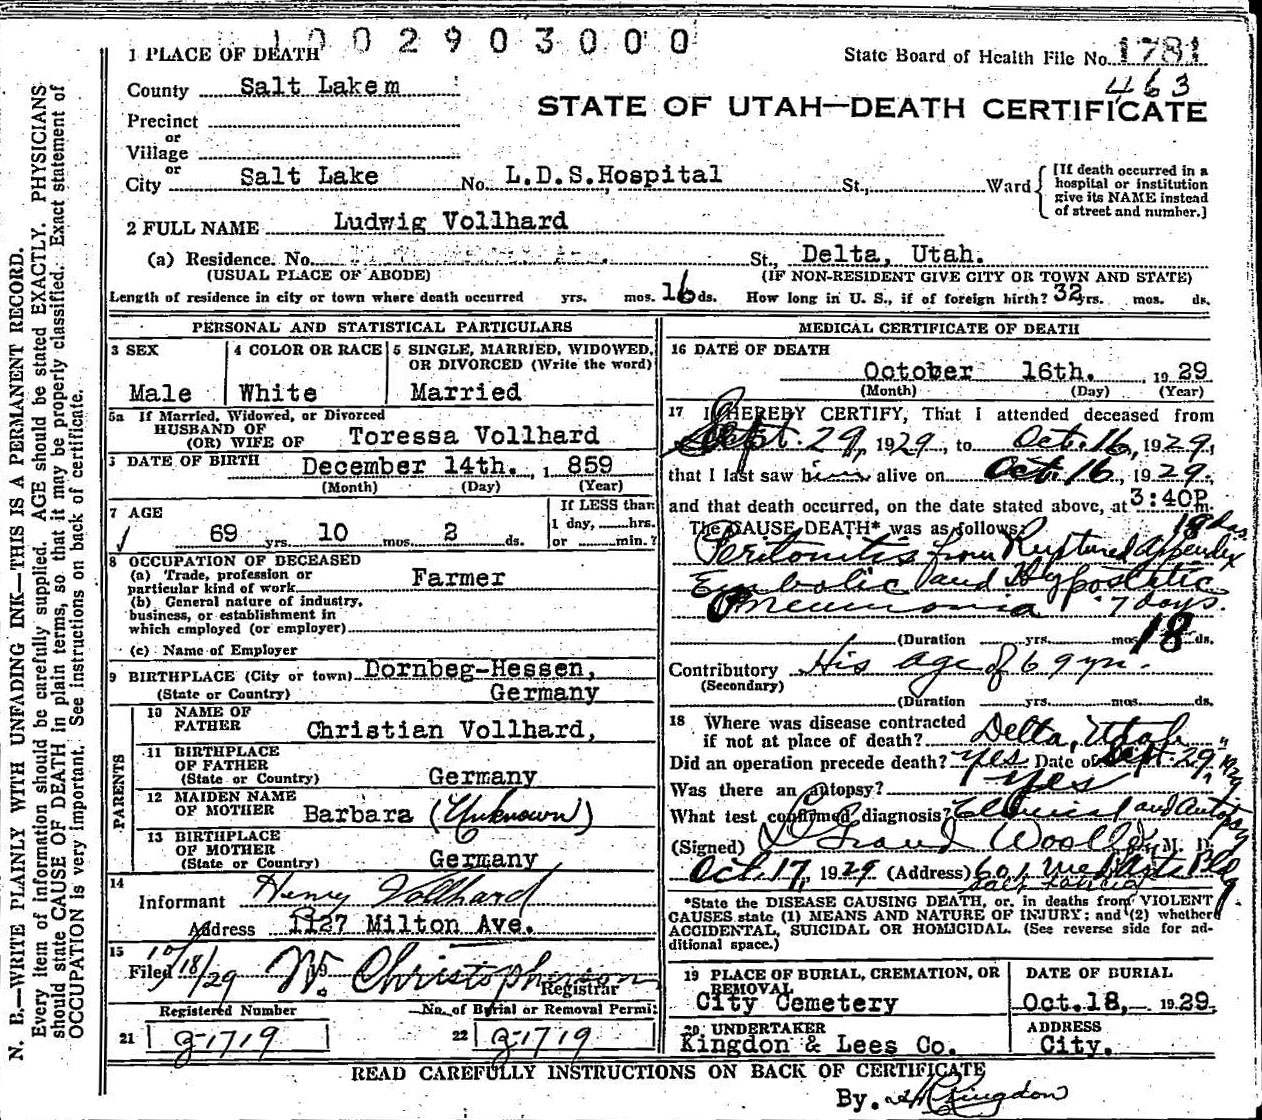 1002903000
1 PLACE OF DEATH
State Board of Health File No. 1781
463
County Salt Lake m
STATE OF UTAH—DEATH CERTIFICATE
Precinct
or
Village
or
City Salt Lake No. L.D.S.Hospital St., Ward
[If death occurred in a
hospital or institution
give its NAME instead
of street and number.]
2 FULL NAME Ludwig Vollhard
(a) Residence. No. St., Delta, Utah.
(USUAL PLACE OF ABODE) (IF NON-RESIDENT GIVE CITY OR TOWN AND STATE)
Length of residence in city or town where death occurred yrs. mos. 16 ds. How long in U. S., if of foreign birth? 32 yrs. mos. ds.
PERSONAL AND STATISTICAL PARTICULARS
3 SEX
Male
4 COLOR OR RACE
White
5 SINGLE, MARRIED, WIDOWED,
OR DIVORCED (Write the word)
Married
5a If Married, Widowed, or Divorced
HUSBAND OF
(OR) WIFE OF Toressa Vollhard
DATE OF BIRTH December 14th. , 1 859
(Month) (Day) (Year)
7 AGE
69 yrs. 10 mos. 2 ds.
If LESS than
1 day, hrs.
or min.?
8 OCCUPATION OF DECEASED
(a) Trade, profession or
particular kind of work Farmer
(b) General nature of industry,
business, or establishment in
which employed (or employer)
(c) Name of Employer
9 BIRTHPLACE (City or town) Dornbeg-Hessen,
(State or Country) Germany
PARENTS
10 NAME OF
FATHER Christian Vollhard,
11 BIRTHPLACE
OF FATHER
(State or Country) Germany
12 MAIDEN NAME
OF MOTHER Barbara (Unknown)
13 BIRTHPLACE
OF MOTHER
(State or Country) Germany
14
Informant Henry Vollhard
Address 1127 Milton Ave.
15
Filed 10/18/29 W. Christopherson
Registrar
Registered Number
21 2-1719
No. of Burial or Removal Permit
22 2-1719
MEDICAL CERTIFICATE OF DEATH
16 DATE OF DEATH
October 16th. , 19 29
(Month) (Day) (Year)
17 I HEREBY CERTIFY, That I attended deceased from
Sept. 29, 1929, to Oct. 16, 1929,
that I last saw him alive on Oct. 16, 1929,
and that death occurred, on the date stated above, at 3:40P m.
The CAUSE DEATH* was as follows: 18 das
Peritonitis from Ruptured Appendix
Embolic and Hypostatic
Pneumonia 7 days.
(Duration yrs. mos. 18 ds.
Contributory His age of 69 yrs.
(Secondary)
(Duration yrs. mos. ds.
18 Where was disease contracted
if not at place of death? Delta, Utah
Did an operation precede death? yes Date of Sept. 29, 1929
Was there an autopsy? yes
What test confirmed diagnosis? Clinical and Autopsy
(Signed) M. D.
Oct. 17, 1929 (Address) 601 Bldg
*State the DISEASE CAUSING DEATH, or, in deaths from VIOLENT
CAUSES state (1) MEANS AND NATURE OF INJURY; and (2) whether
ACCIDENTAL, SUICIDAL OR HOMICIDAL. (See reverse side for ad-
ditional space.)
19 PLACE OF BURIAL, CREMATION, OR
REMOVAL
City Cemetery
DATE OF BURIAL
Oct.18, 1929.
20. UNDERTAKER
Kingdon & Lees Co.
ADDRESS
City.
READ CAREFULLY INSTRUCTIONS ON BACK OF CERTIFICATE
By. Kingdon
N. B.—WRITE PLAINLY WITH UNFADING INK—THIS IS A PERMANENT RECORD.
Every item of information should be carefully supplied. AGE should be stated EXACTLY. PHYSICIANS
should state CAUSE OF DEATH in plain terms, so that it may be properly classified. Exact statement of
OCCUPATION is very important. See instructions on back of certificate.